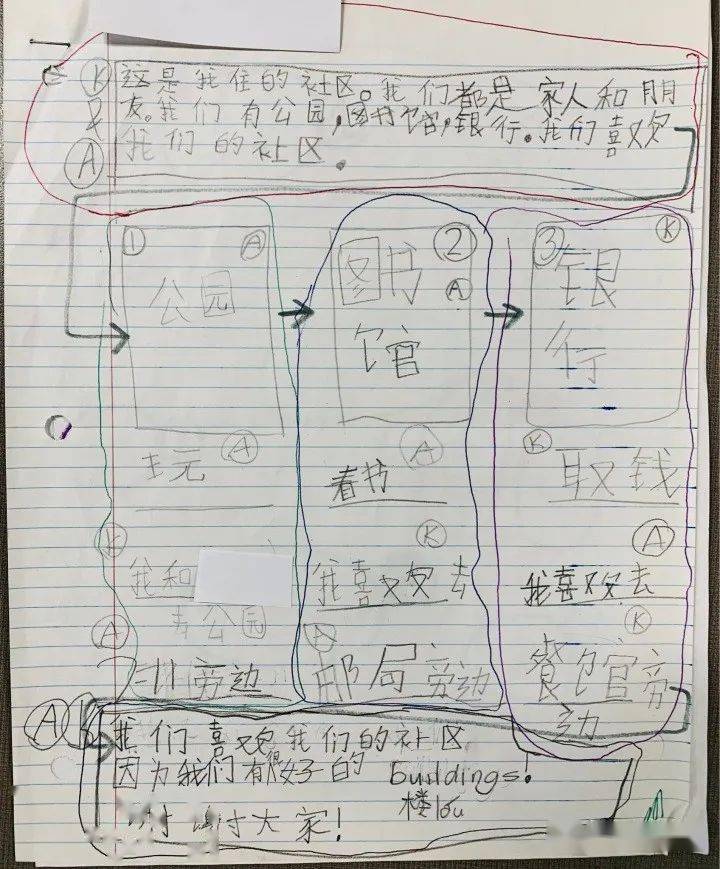 K 这是我住的社区。我们都是家人和朋
& 友。我们有公园,图书馆,银行。我们喜欢
A 我们的社区.
1 A
公园
2 A
图书
馆
3 K
银
行
A
玩
A
看书
K
取钱
K
我和
公园
K
我喜欢去
A
我喜欢去
A
劳边
A
邮局劳动
K
餐馆官劳
动
A K 我们喜欢我们的社区
因为我们有很好的 buildings!
楼lóu
谢谢大家!